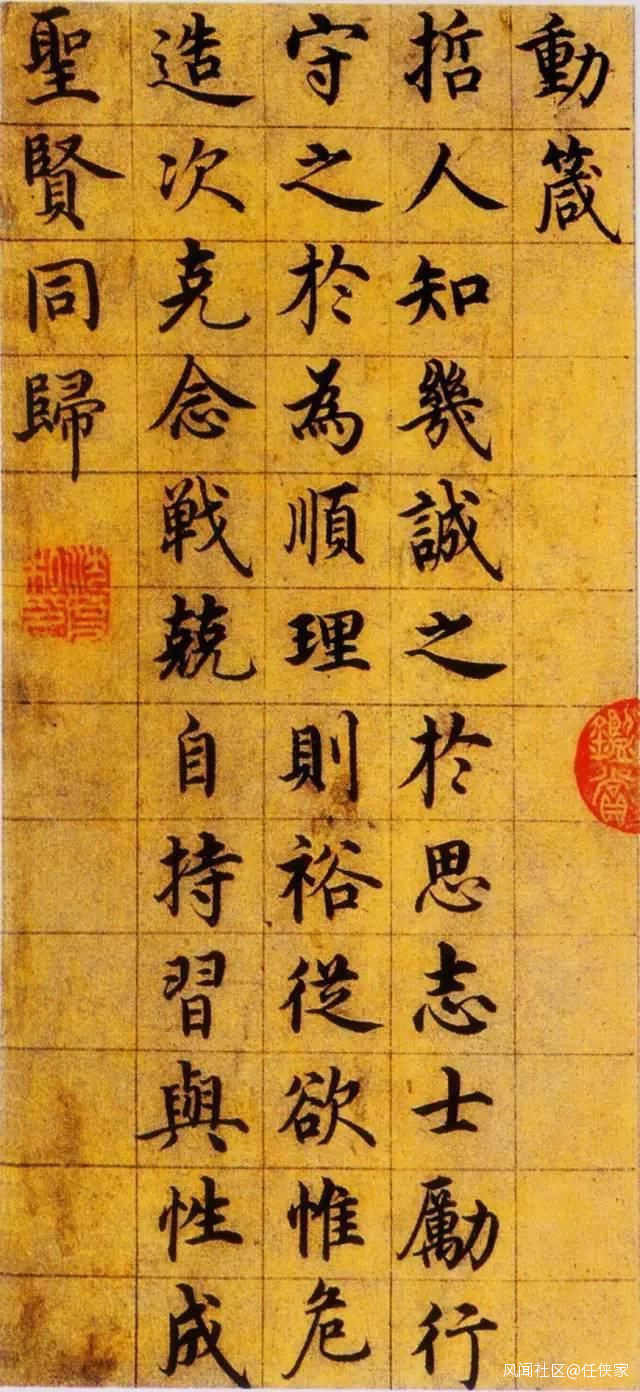 動箴
哲人知幾誠之於思志士勵行
守之於為順理則裕從欲惟危
造次克念戦兢自持習與性成
聖賢同歸
鑑賞
风闻社区@任侠家